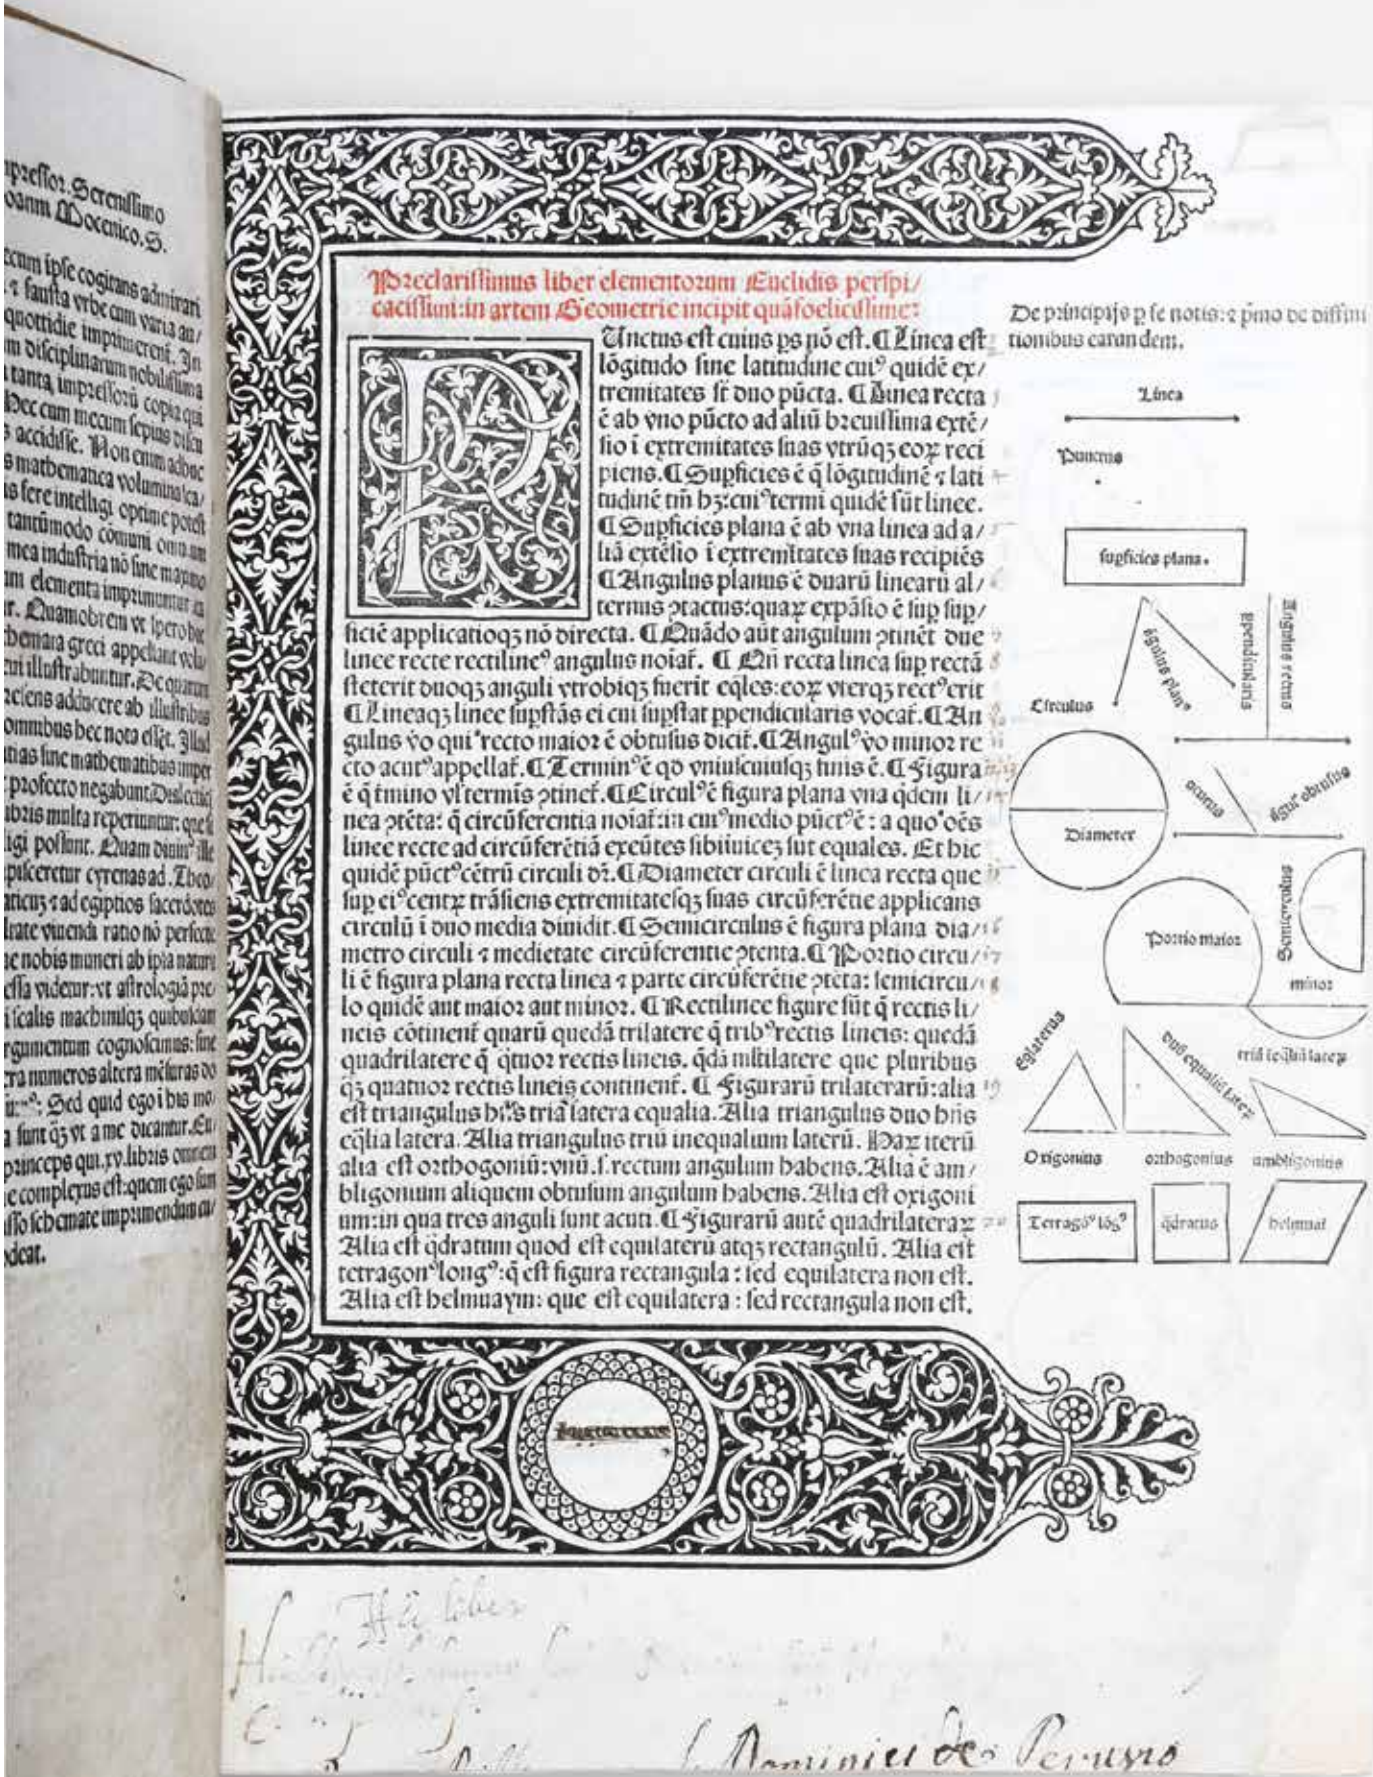 mpressor. Serenissimo
oanni Mocenico. S.
ecum ipse cogitans admirari
⁊ fausta vrbe cum varia au/
quottidie imprimerent. In
m disciplinarum nobilissima
tanta impressorū copia qui
Hec cum mecum sepius discu
s accidisse. Non enim adhuc
s mathematica volumina sca/
us fere intelligi optime potest
tantūmodo cōmuni omnium
mea industria nō sine maximo
um elementa imprimuntur
r. Quamobrem vt spero hoc
themata greci appellant volu
cui illustrabuntur. De quarum
resens adducere ab illustribus
omnibus hec nota esset. Illud
tias sine mathematibus imper
profecto negabunt Dialectici
libris multa reperiuntur: que si
ligi possunt. Quam diuinꝰ ille
ipisceretur cyrenas ad. Theo/
aticuꝫ ⁊ ad egiptios sacerdotes
rate viuendi ratio nō perfecte
e nobis muneri ab ipsa natura
essa videtur: vt astrologiā pre/
i scalis machinisqꝫ quibusdam
rgumentum cognoscimus: sine
ra numeros altera mēsuras do
Sed quid ego ī his mo/
a sunt qꝫ vt a me dicantur. Eu/
princeps qui. xv. libris omnem
e complexus est: quem ego sum
isso schemate imprimendum cu/
deat.
Preclarissimus liber elementorum Euclidis perspi/
cacissimi: in artem Geometrie incipit quāfoelicissime:
Unctus est cuius ps nō est. ¶ Linea est
lōgitudo sine latitudine cuiꝰ quidē ex/
tremitates sūt duo pūcta. ¶ Linea recta
ē ab vno pūcto ad aliū breuissima extē/
sio ī extremitates suas vtrūqꝫ eoꝝ reci
piens. ¶ Supficies ē q̄ lōgitudinē ⁊ lati
tudinē tm̄ hꝫ: cuiꝰ termi quidē sūt linee.
¶ Supficies plana ē ab vna linea ad a/
liā extēsio ī extremitates suas recipiēs
¶ Angulus planus ē duarū linearū al/
ternus ꝯtactus: quaꝝ expāsio ē sup sup/
ficiē applicatioqꝫ nō directa. ¶ Quādo aūt angulum ꝯtinēt due
linee recte rectilineꝰ angulus noiat̄. ¶ Qn̄ recta linea sup rectā
steterit duoqꝫ anguli vtrobiqꝫ fuerit eq̄les: eoꝝ vterqꝫ rectꝰ erit
¶ Lineaqꝫ linee supstās ei cui supstat ppendicularis vocat̄. ¶ An
gulus vo qui recto maior ē obtusus dicit̄. ¶ Angulꝰ vo minor re
cto acutꝰ appellat̄. ¶ Terminꝰ ē qd vniuscuiusqꝫ finis ē. ¶ Figura
ē q̄ tmino vl terminis ꝯtinet̄. ¶ Circulꝰ ē figura plana vna q̄dem li/
nea ꝯtēta: q̄ circūferentia noiat̄: in cuiꝰ medio pūctꝰ ē: a quo oēs
linee recte ad circūferētiā exeūtes sibiinuiceꝫ sūt equales. Et hic
quidē pūctꝰ cētrū circuli dr̄. ¶ Diameter circuli ē linea recta que
sup eiꝰ centꝝ trāsiens extremitatesqꝫ suas circūferētie applicans
circulū ī duo media diuidit. ¶ Semicirculus ē figura plana dia/
metro circuli ⁊ medietate circūferentie ꝯtenta. ¶ Portio circu/
li ē figura plana recta linea ⁊ parte circūferētie ꝯtēta: semicircu/
lo quidē aut maior aut minor. ¶ Rectilinee figure sūt q̄ rectis li/
neis cōtinent̄ quarū quedā trilatere q̄ tribꝰ rectis lineis: quedā
quadrilatere q̄ q̄tuor rectis lineis. q̄dā multilatere que pluribus
qꝫ quatuor rectis lineis continent̄. ¶ Figurarū trilaterarū: alia
est triangulus hn̄s tria latera equalia. Alia triangulus duo hn̄s
eq̄lia latera. Alia triangulus triū inequalium laterū. Haꝝ iterū
alia est orthogoniū: vnū. s. rectum angulum habens. Alia ē am/
bligonium aliquem obtusum angulum habens. Alia est oxigoni
um: in qua tres anguli sunt acuti. ¶ Figurarū autē quadrilateraꝝ
Alia est q̄dratum quod est equilaterū atqꝫ rectangulū. Alia est
tetragonꝰ longꝰ: q̄ est figura rectangula: sed equilatera non est.
Alia est helmuaym: que est equilatera: sed rectangula non est.
De principijs p se notis: ⁊ pmo de diffini
tionibus earandem.
Linea
Punctus
supficies plana.
āgulus planꝰ
ppendicularis
Angulus rectus
Circulus
Diameter
acutus
āgulꝰ obtusus
Portio maior
Semicirculus
minor
Eqlaterus
duū equaliū laterū
triū ieq̄liū lateꝝ
Oxigonius
orthogonius
ambligonius
Tetragōꝰ lōgꝰ
q̄dratus
helmuai
liber
Dominici de Perusio